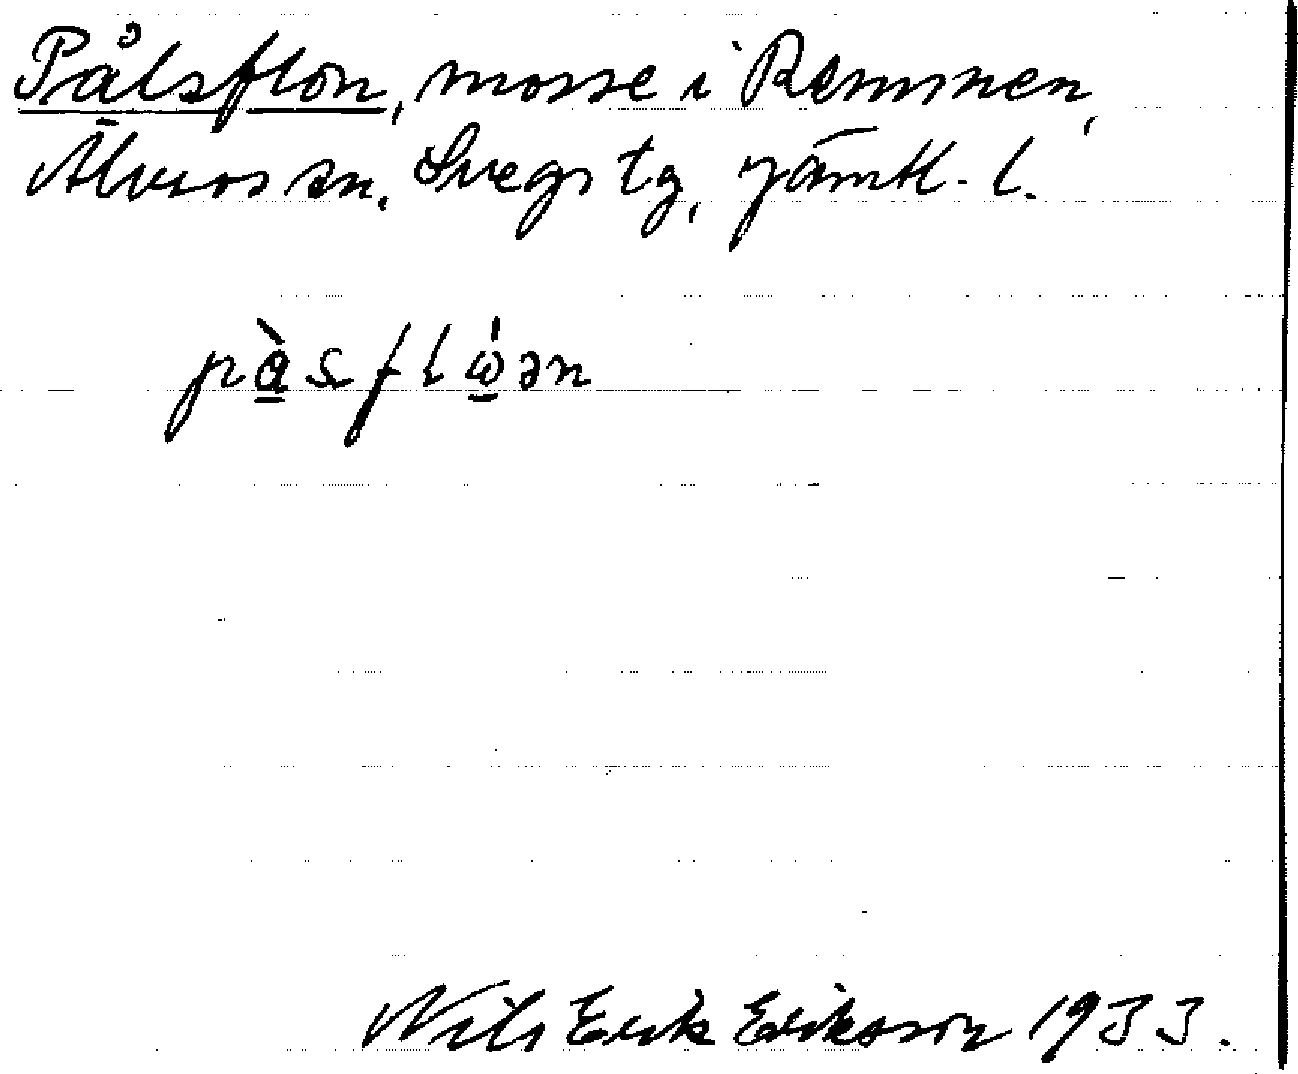 Pålsflon, mosse i Remmen,
Älvros sn. Svegs tg, Jämtl. l.
pàsflω̇ən
Nils Erik Eriksson 1933.